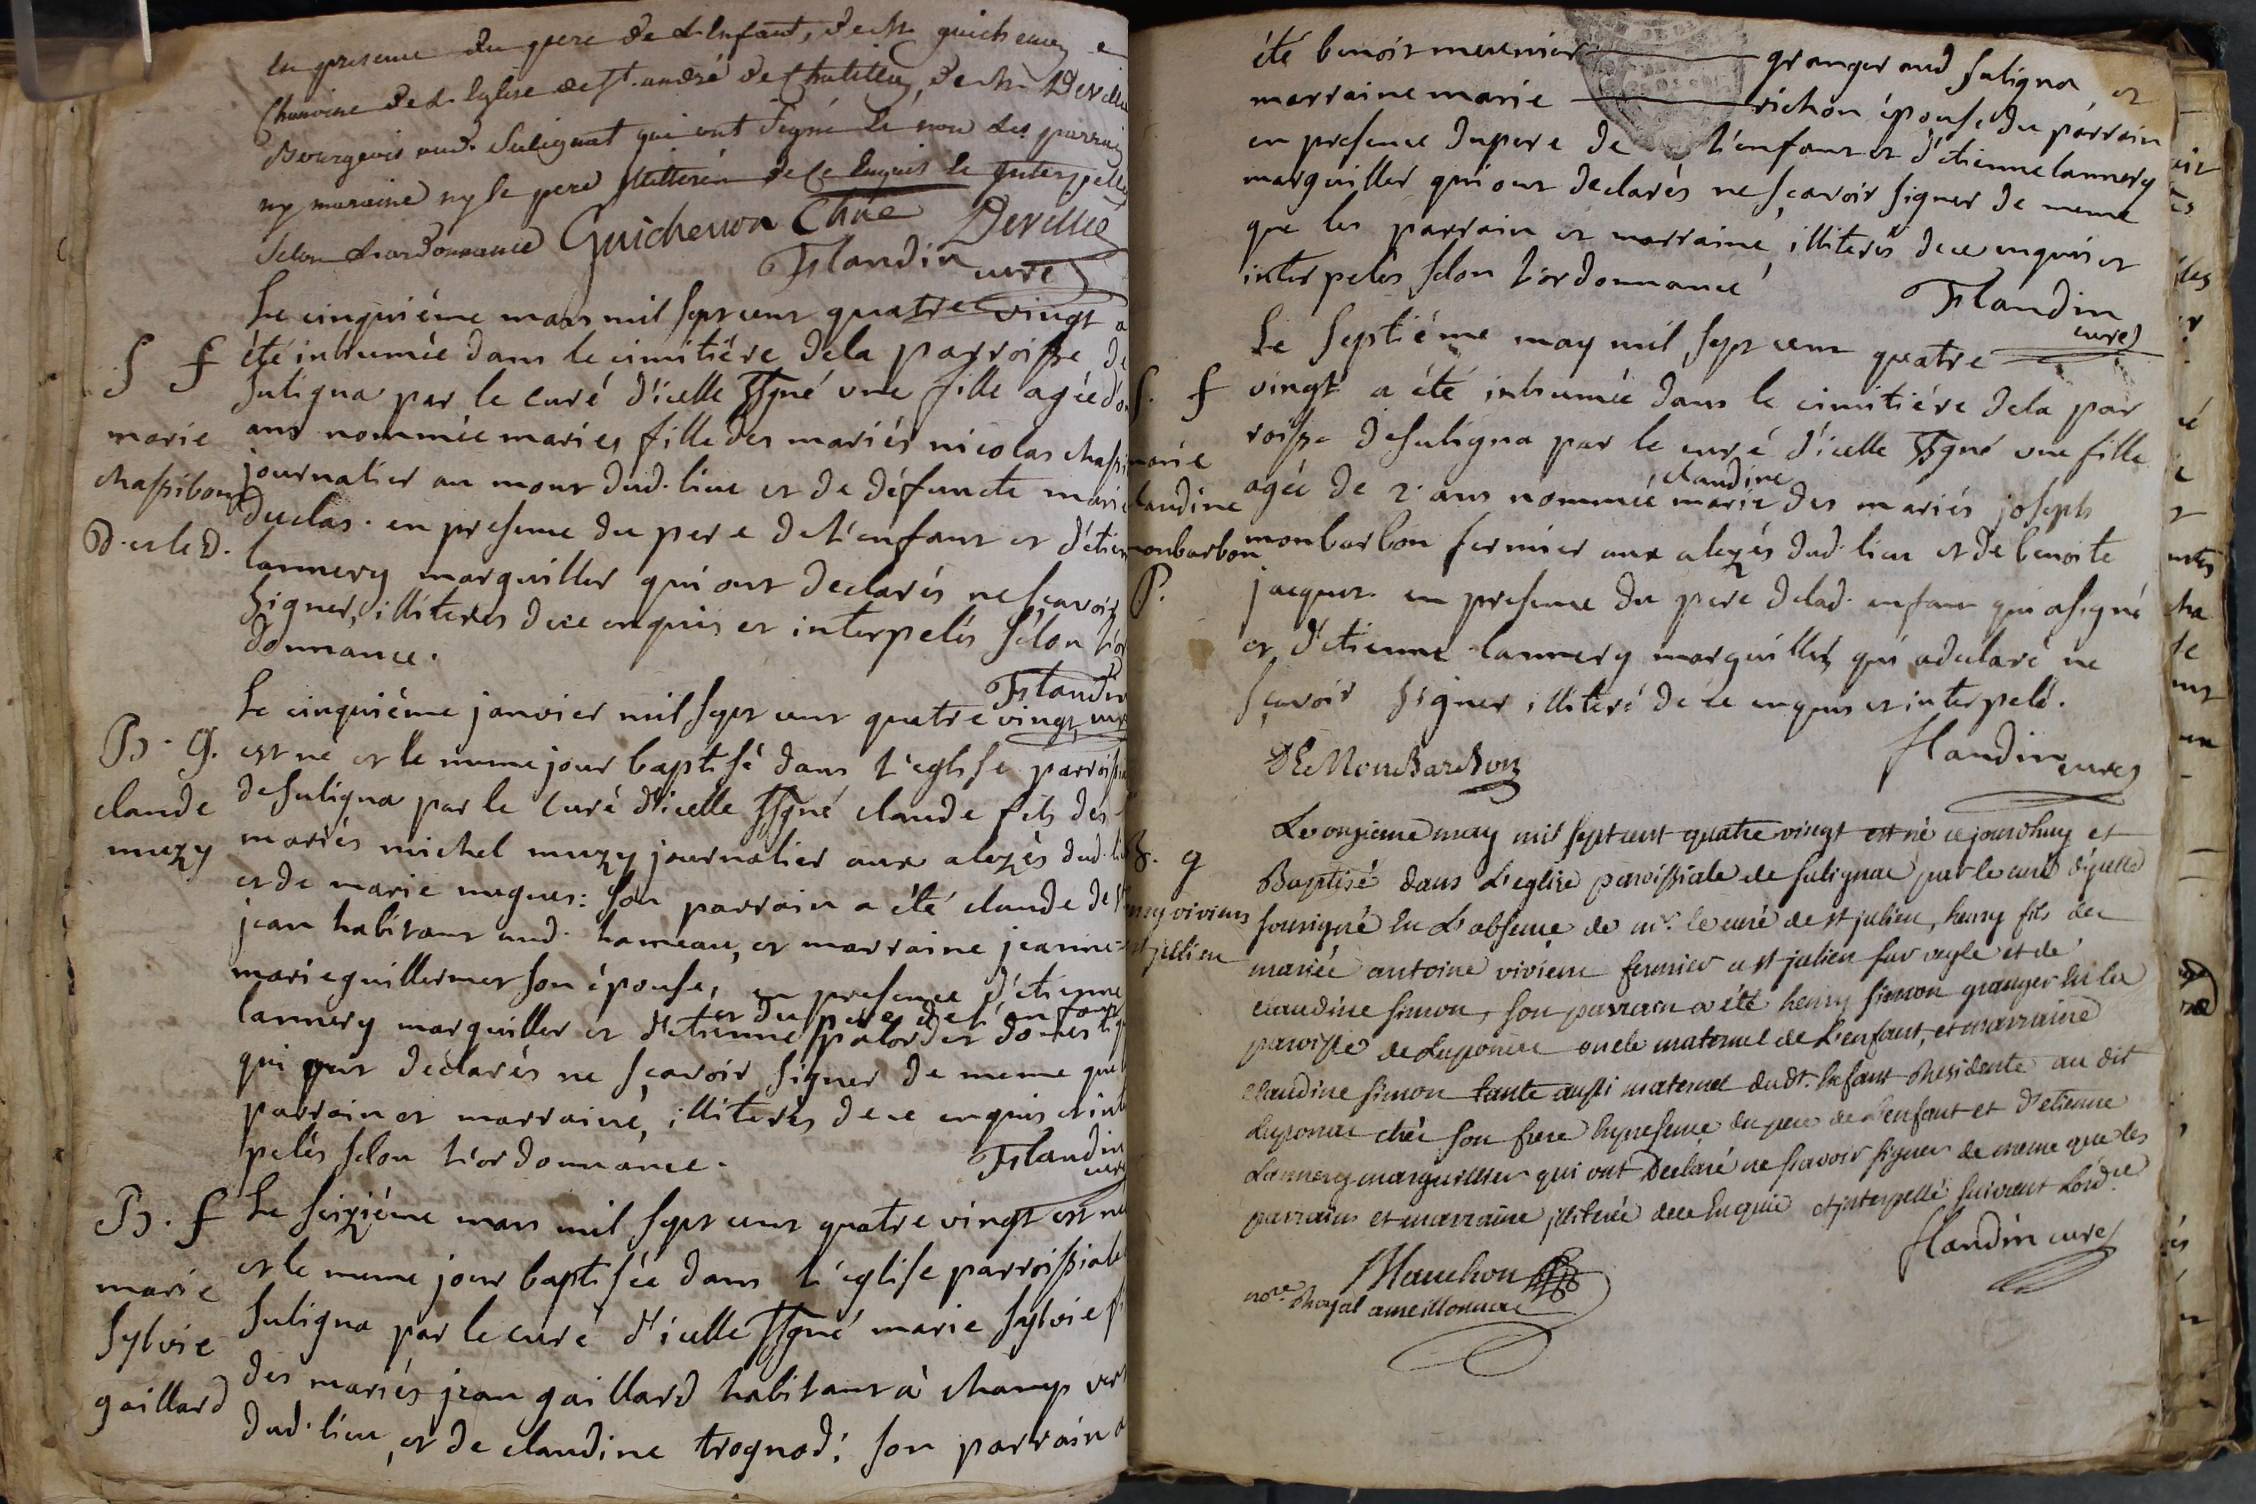 en presence du pere de L'Enfant, de Mr guichenon
Chanoine de L'Eglise de St. andré de Chatillon, de Mr Deville
Bourgeois aud. Sulignat qui ont signé Le non Les parrain
ny maraine ny le pere illitterés de ce Enquis et Interpellés
selon L'ordonnance Guichenon Chne Deville
Flandin curé
Le cinquiéme mars mil sept cent quatre vingt a
été inhumée dans le cimitiére dela parroisse de
suligna par le curé d'icelle ssgné une fille agée
ans nommée marie, fille des mariés nicolas chassi
journalier au mont dud. lieu et de défuncte marie
duclas. en presence du pere de l'enfant et d'étien
lannery marguiller qui ont declarés ne sçavoir
signer, illiterés dece enquis et interpelés selon l'or
donnance.
Flandin
S f
marie
chassibout
Le cinquiéme janvier mil sept cent quatre vingt
est né et le meme jour baptisé dans l'eglise parroissia
de suligna par le curé d'icelle ssgné claude fils des
mariés michel muzy journalier aux alezés dud. li
et de marie nugues: son parrain a été claude de st
jean habitant aud. hameau, et marraine jeanne
marie guillermet son épouse, en presence d'étienne
et du pere de l'enfant
lannery marguiller et d'etienne palordet domestiq
qui ont declarés ne sçavoir signer de meme que
parrain et marraine, illiterés dece enquis et inter
pelés selon l'ordonnance.
Flandin
curé
B. g.
claude
muzy
Le seiziéme mars mil sept cent quatre vingt est né
et le meme jour baptisée dans l'eglise parroissiale
suligna par le curé d'icelle ssgné marie sylvie f
des mariés jean gaillard habitant à champ vert
dud. lieu, et de claudine trognod: son parrain a
B. f
marie
sylvie
gaillard
été benoit meunier granger aud suligna et
marraine marie richon épouse du parrain
en presence du pere de l'enfant et d'etienne lannery
marguiller qui ont declarés ne sçavoir signer de meme
que les parrain et marraine, illiterés dece enquis et
interpelés selon l'ordonnance
Flandin
curé
Le septiéme may mil sept cent quatre
vingt a été inhumée dans le cimitiére dela par
roisse de suligna par le curé d'icelle ssgné une fille
claudine
agée de 2. ans nommée marie des mariés joseph
monbarbon fermier aux alezés dud. lieu et de benoite
jacquet. en presence du pere de lad. enfant qui a signé
et d'etienne lannery marguiller qui a declaré ne
sçavoir signer illiteré de ce enquis et interpelé.
flandin curé
S. f
marie
claudine
monbarbon
P.
Le onzieme may mil sept cent quatre vingt est né ce jourdhuy et
Baptisé dans L'eglise paroissiale de sulignat par le curé d'icelle
soussigné En L'absence de mr. le curé de st julien, henry fils des
mariés antoine viviens fermier a st julien sur veyle et de
claudine simon, son parrain a été henry simon granger En la
paroisse de Luponas oncle maternel de L'enfant, et marraine
claudine simon tante aussi maternel dudt. Enfant Residente au dit
Luponas chés son frere En presence du pere de L'enfant et d'etienne
Lannery marguillier qui ont Declaré ne scavoir signer de meme que les
parrain et marraine illiterés dece Enquis et interpellé suivant L'ordce
flandin curé
B. g
henry viviens
st jullien
nore. Royal a meillonnas